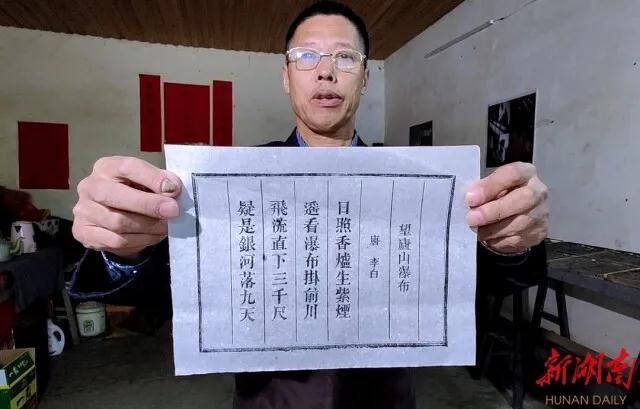 望廬山瀑布
唐 李白
日照香爐生紫煙
遥看瀑布掛前川
飛流直下三千尺
疑是銀河落九天
新湖南
HUNAN DAILY